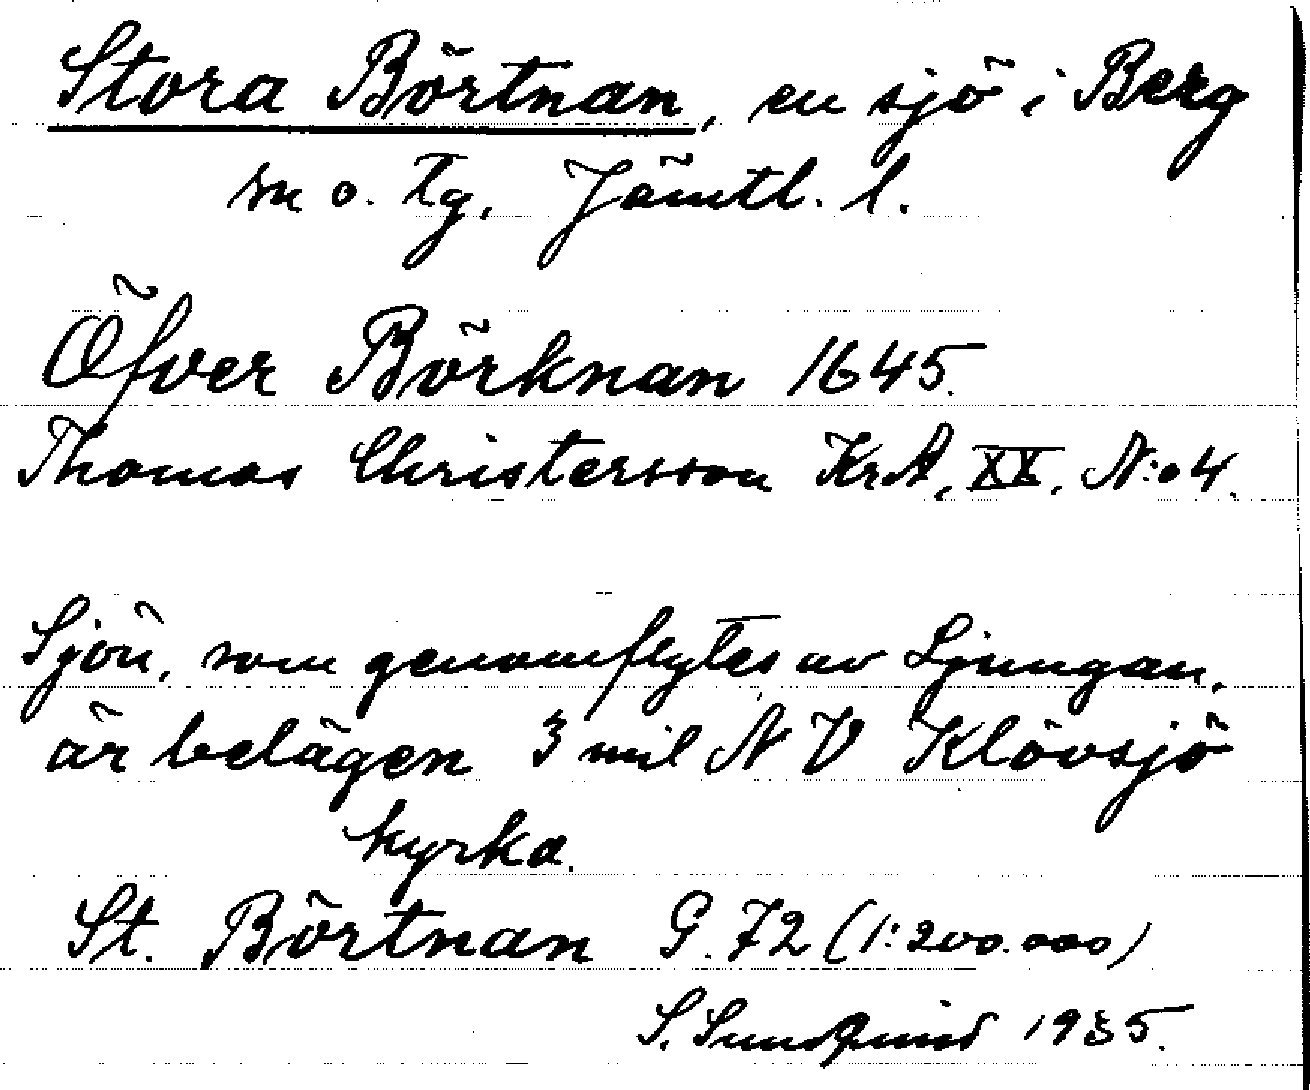 Stora Börtnan, en sjö i Berg
sn o. tg. Jämtl. l.
Öfver Börknan 1645.
Thomas Christersson KrA, XX, N:o 4.
Sjön, som genomflytes av Ljungan,
är belägen 3 mil N V Klövsjö
kyrka.
St. Börtnan G. 72 (1:200.000)
S. Sundquist 1935.